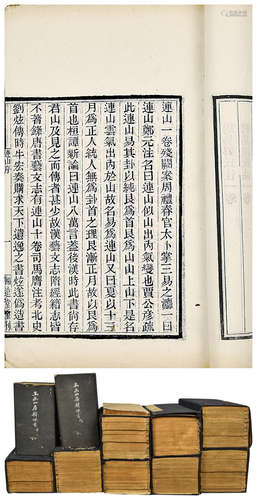 連山一卷殘闕案周禮春官太卜掌三易之灋一曰
連山鄭元注名曰連山似山出內氣變也賈公彥疏
此連山易其卦以純艮爲首艮爲山山上山下是名
連山雲氣出內於山故名易爲連山又曰夏以十三
月爲正人統人無爲卦首之理艮漸正月故以艮爲
首也桓譚新論曰連山八萬言蓋後漢時此書尚存
君山及見之而傳者甚少故漢藝文志隋經籍志皆
不著錄唐書藝文志有連山十卷司馬膺注考北史
劉炫傳時牛宏奏購求天下遺逸之書炫遂僞造書
連山序